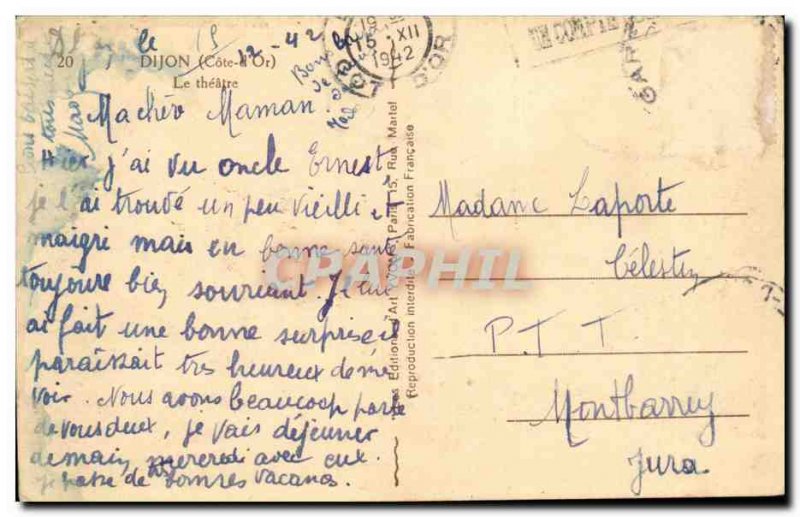 le 15 12-42
20 DIJON (Côte-d'Or)
Le théâtre
Ma chère Maman.
Hier j'ai vu oncle Ernest
je l'ai trouvé un peu vieilli et
maigri mais en bonne santé
toujours bien souriant. Je lui
ai fait une bonne surprise il
paraissait très heureux de me
voir. Nous avons beaucoup parlé
de vous deux, je vais déjeuner
demain mercredi avec eux.
je passe de bonnes vacances.
Bons baisers
à tous
15 XII
1942
D'OR
GARE
Reproduction interdite Fabrication Française
Editions d'Art Yvon, Paris, 15, Rue Martel
CPAPHIL
Madame Laporte
Célestin
P T T
Montbarrey
Jura.